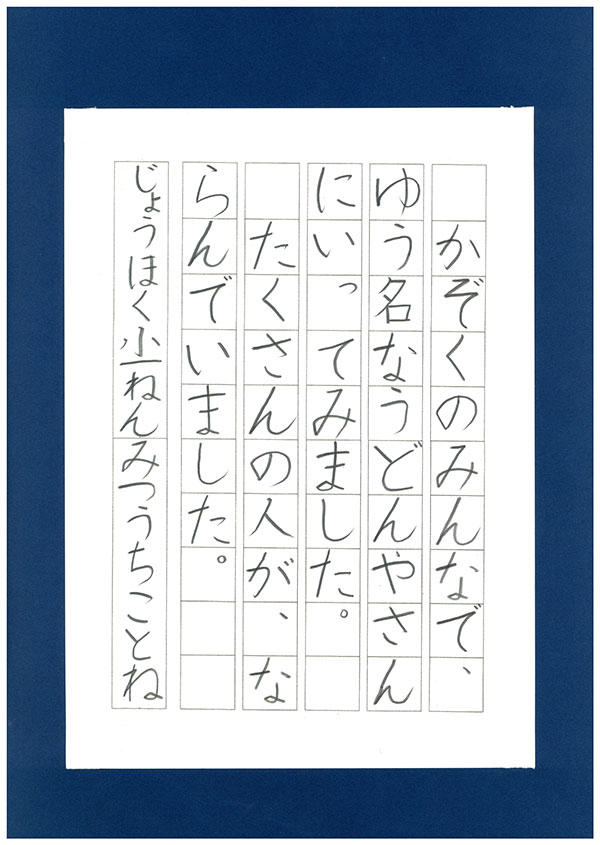 かぞくのみんなで、
ゆう名なうどんやさん
にいってみました。
　たくさんの人が、な
らんでいました。
じょうほく小一ねんみつうちことね